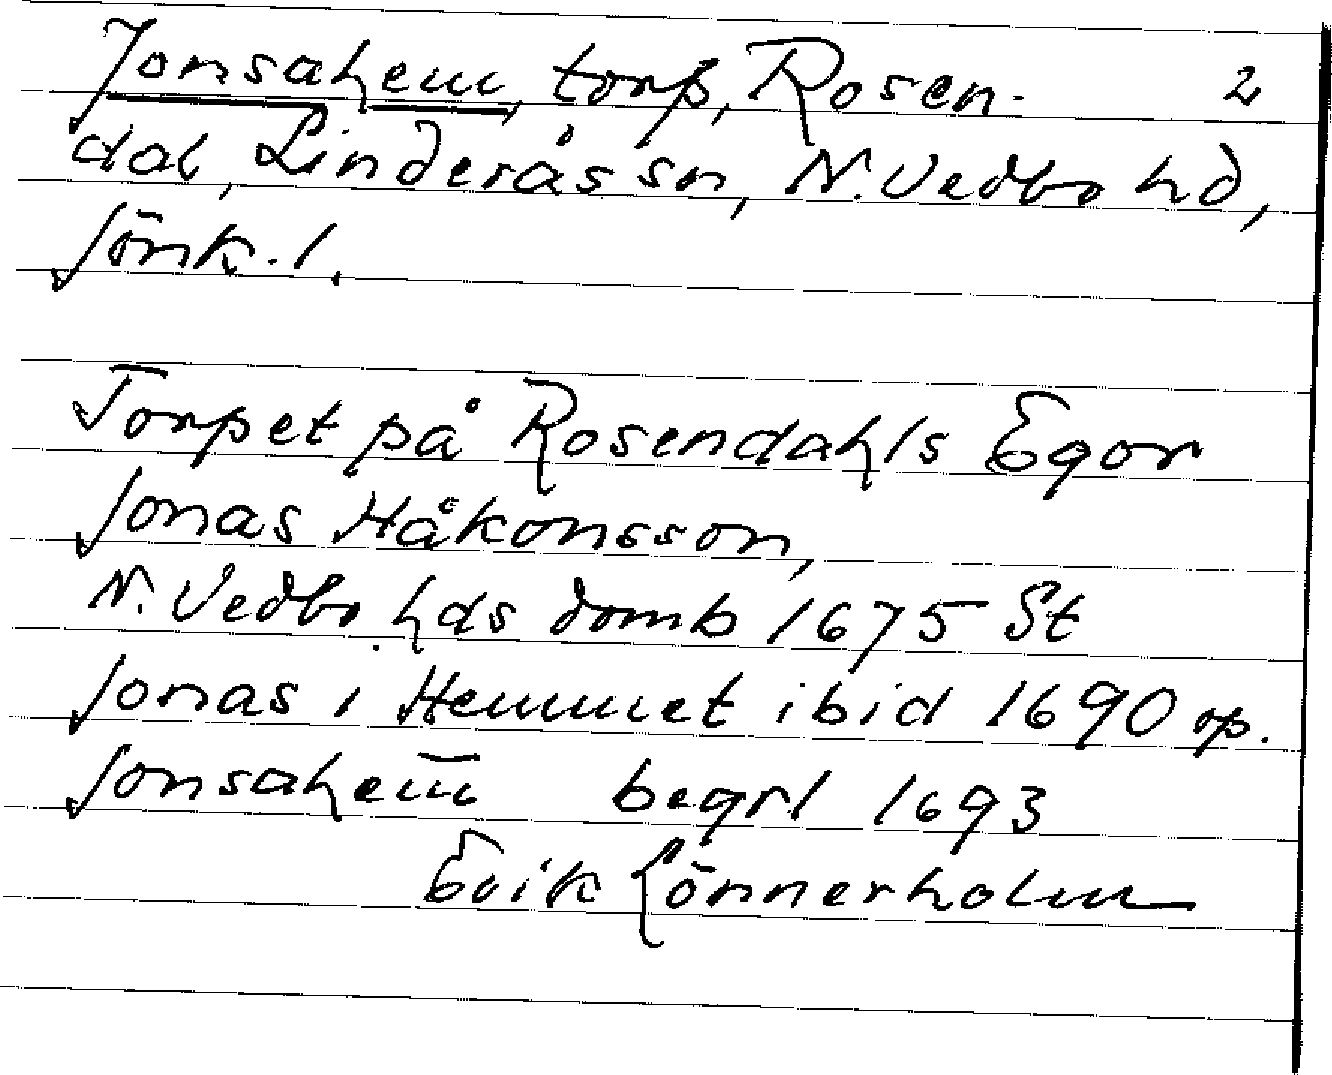 Jonsahem, torp, Rosen- 2
dal, Linderås sn, N. Vedbo hd,
Jönk. l.
Torpet på Rosendahls Egor
Jonas Håkonsson,
N. Vedbo hds domb 1675 St
Jonas i Hemmet ibid 1690 op.
Jonsahem̄ begrl 1693
Erik Lönnerholm